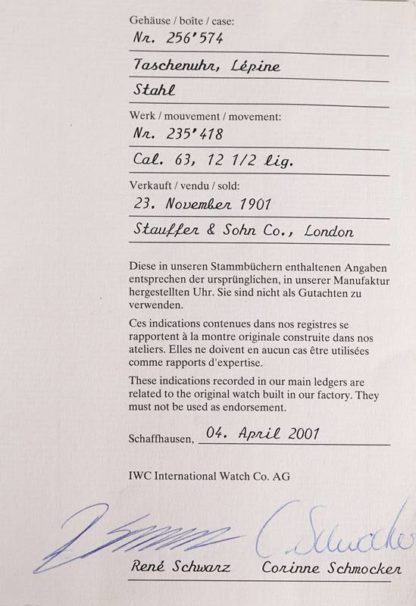 Gehäuse / boîte / case:
Nr. 256'574
Taschenuhr, Lépine
Stahl
Werk / mouvement / movement:
Nr. 235'418
Cal. 63, 12 1/2 lig.
Verkauft / vendu / sold:
23. November 1901
Stauffer & Sohn Co., London
Diese in unseren Stammbüchern enthaltenen Angaben
entsprechen der ursprünglichen, in unserer Manufaktur
hergestellten Uhr. Sie sind nicht als Gutachten zu
verwenden.
Ces indications contenues dans nos registres se
rapportent à la montre originale construite dans nos
ateliers. Elles ne doivent en aucun cas être utilisées
comme rapports d'expertise.
These indications recorded in our main ledgers are
related to the original watch built in our factory. They
must not be used as endorsement.
Schaffhausen, 04. April 2001
IWC International Watch Co. AG
C. Schmocker
René Schwarz Corinne Schmocker